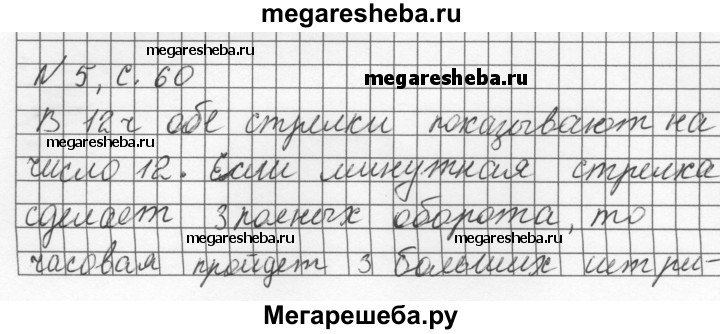 megaresheba.ru
megaresheba.ru
N 5, с. 60
megaresheba.ru
В 12 ч обе стрелки показывают на
megaresheba.ru
число 12. Если минутная стрелка
сделает 3 полных оборота, то
megaresheba.ru megaresheba.ru
часовая пройдет 3 больших штри-
Мегарешеба.ру